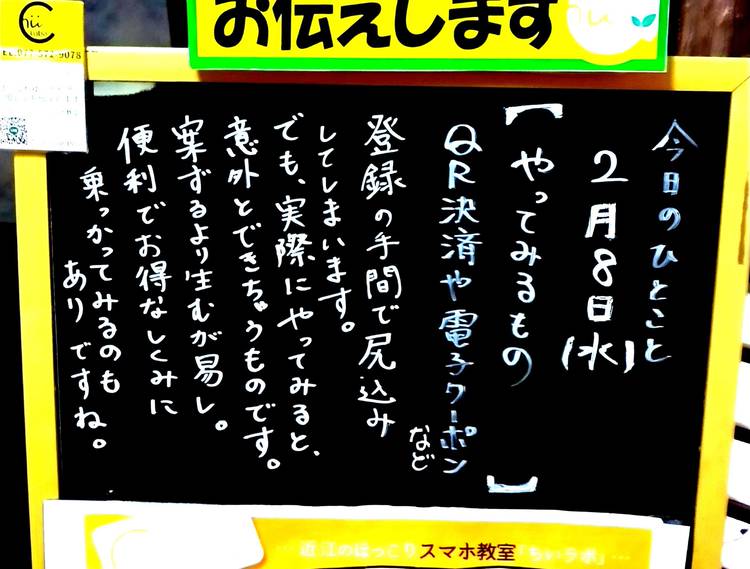 お伝えします
今日のひとこと
2月8日(水)
【やってみるもの】
QR決済や電子クーポン
など
登録の手間で尻込み
してしまいます。
でも、実際にやってみると、
意外とできちゃうものです。
案ずるより生むが易し。
便利でお得なしくみに
乗っかってみるのも
ありですね。
…近江のほっこりスマホ教室「ちぃラボ」…